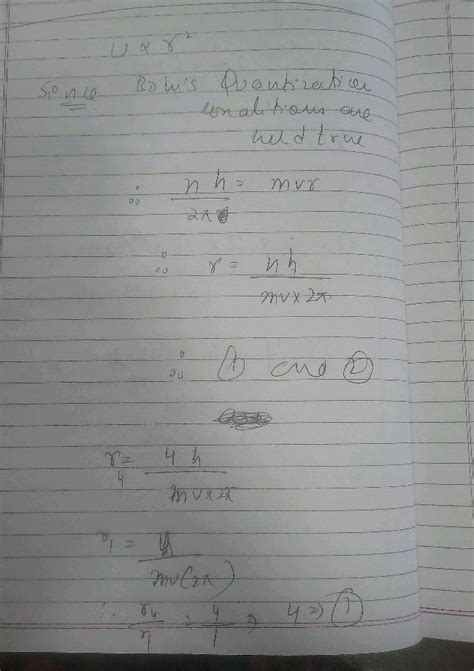 U ∝ r²
Since Bohr's Quantization
conditions are
held true
∴ nh/2π = mvr
∴ r = nh/mv×2π
∴ ① and ②
r₄ = 4h/mv×2π
r₁ = h/mv(2π)
∴ r₄/r₁ = 4/1 = 4 ⇒ ①